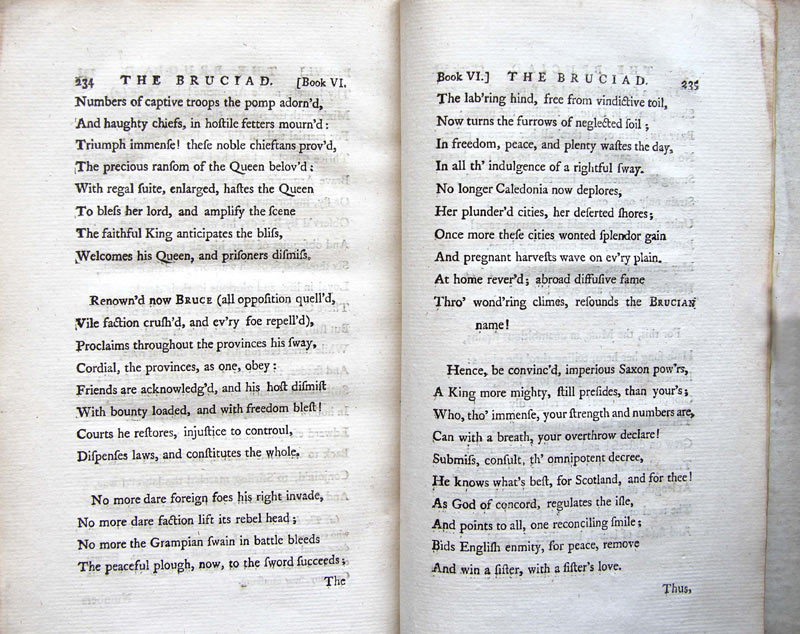 234 THE BRUCIAD. [Book VI.
Numbers of captive troops the pomp adorn'd,
And haughty chiefs, in hoſtile fetters mourn'd:
Triumph immenſe! theſe noble chieftans prov'd,
The precious ranſom of the Queen belov'd:
With regal ſuite, enlarged, haſtes the Queen
To bleſs her lord, and amplify the ſcene
The faithful King anticipates the bliſs,
Welcomes his Queen, and priſoners diſmiſs.
Renown'd now BRUCE (all oppoſition quell'd,
Vile faction cruſh'd, and ev'ry foe repell'd),
Proclaims throughout the provinces his ſway,
Cordial, the provinces, as one, obey:
Friends are acknowledg'd, and his hoſt diſmiſt
With bounty loaded, and with freedom bleſt!
Courts he reſtores, injuſtice to controul,
Diſpenſes laws, and conſtitutes the whole.
No more dare foreign foes his right invade,
No more dare faction lift its rebel head;
No more the Grampian ſwain in battle bleeds
The peaceful plough, now, to the ſword ſucceeds;
The
Book VI.] THE BRUCIAD. 235
The lab'ring hind, free from vindictive toil,
Now turns the furrows of neglected ſoil;
In freedom, peace, and plenty waſtes the day,
In all th' indulgence of a rightful ſway.
No longer Caledonia now deplores,
Her plunder'd cities, her deſerted ſhores;
Once more theſe cities wonted ſplendor gain
And pregnant harveſts wave on ev'ry plain.
At home rever'd; abroad diffuſive fame
Thro' wond'ring climes, reſounds the BRUCIAN
name!
Hence, be convinc'd, imperious Saxon pow'rs,
A King more mighty, ſtill preſides, than your's;
Who, tho' immenſe, your ſtrength and numbers are,
Can with a breath, your overthrow declare!
Submiſs, conſult, th' omnipotent decree,
He knows what's beſt, for Scotland, and for thee!
As God of concord, regulates the iſle,
And points to all, one reconciling ſmile;
Bids Engliſh enmity, for peace, remove
And win a ſiſter, with a ſiſter's love.
Thus,